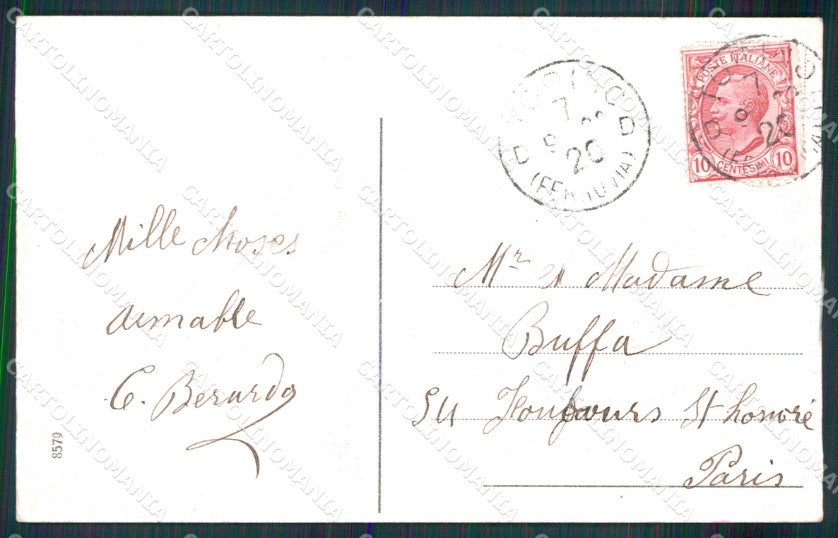 Mille choses
aimable
C. Berardo
8579
POSTE ITALIANE
10 CENTESIMI 10
7
9
20
(FERROVIA)
Mr et Madame
Buffa
54 Faubours St honoré
Paris
CARTOLINOMANIA